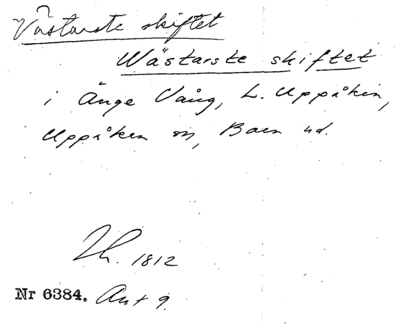 Västarste skiftet
Wästarste skiftet
i Änge Vång, L. Uppåkra,
Uppåkra sn, Bara hd.
Lh. 1812
Nr 6384. Akt 9.